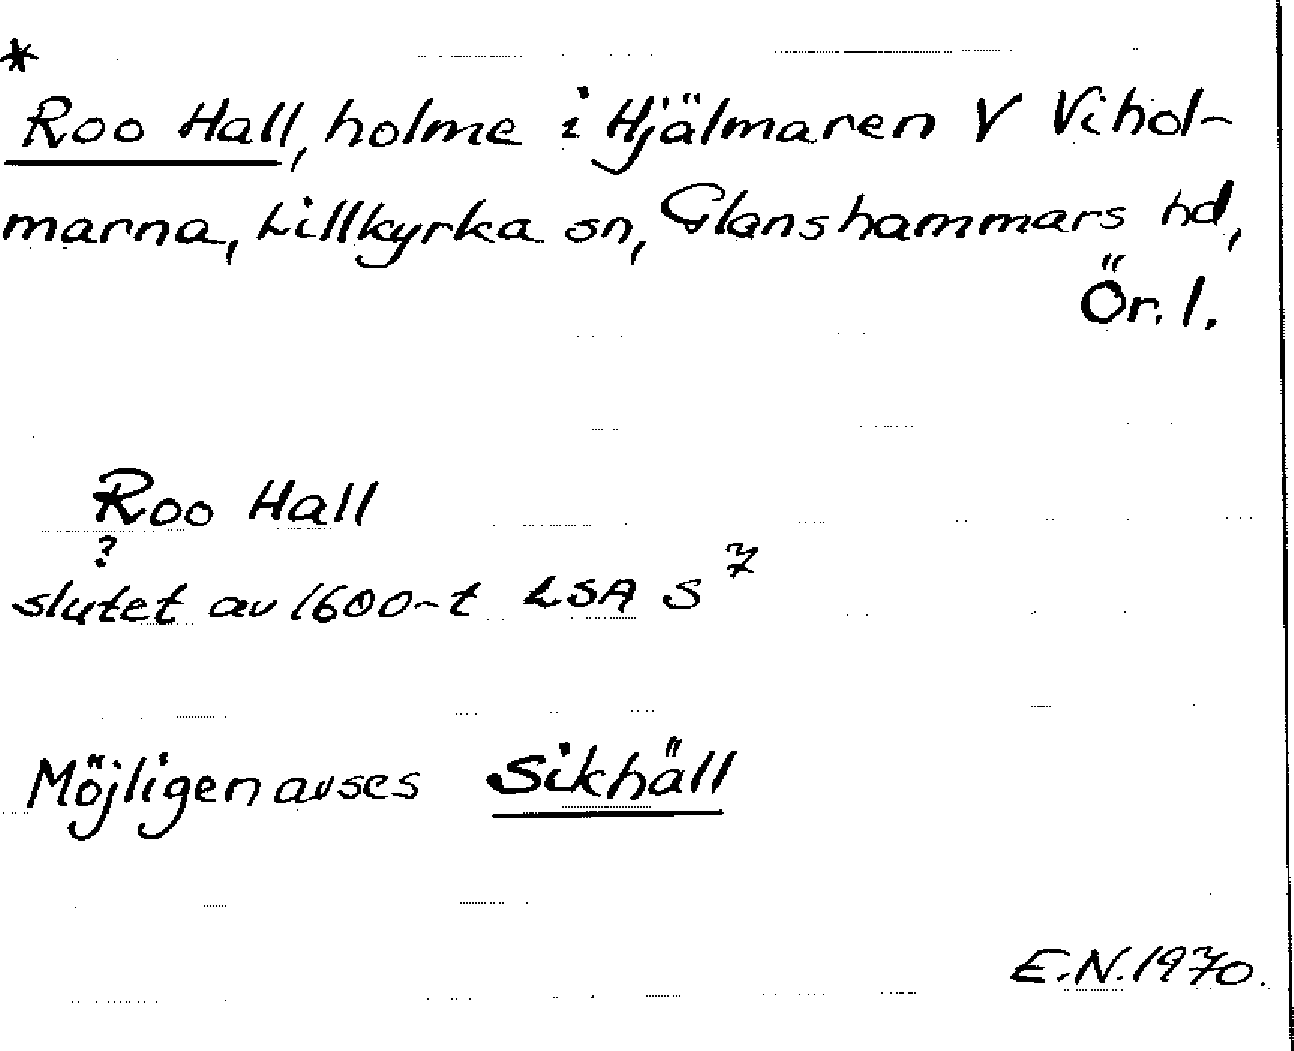 *
Roo Hall, holme i Hjälmaren V Vihol-
marna, Lillkyrka sn, Glanshammars hd,
Ör. l.
Roo Hall
?
slutet av 1600-t LSA S 7
Möjligen avses Sikhäll
E.N. 1970.